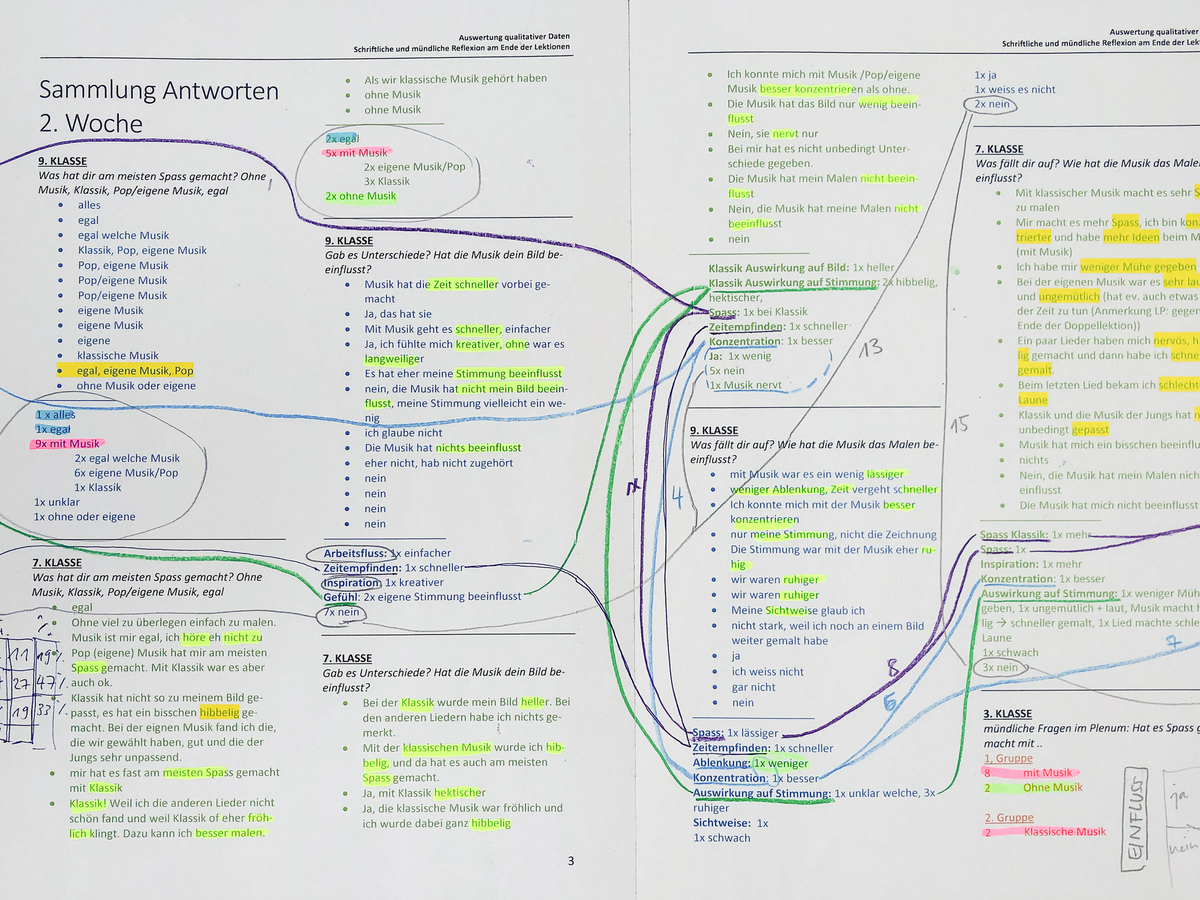 Auswertung qualitativer Daten
Schriftliche und mündliche Reflexion am Ende der Lektionen
Sammlung Antworten
2. Woche
9. KLASSE
Was hat dir am meisten Spass gemacht? Ohne
Musik, Klassik, Pop/eigene Musik, egal
alles
egal
egal welche Musik
Klassik, Pop, eigene Musik
Pop, eigene Musik
Pop/eigene Musik
Pop/eigene Musik
eigene Musik
eigene Musik
eigene
klassische Musik
egal, eigene Musik, Pop
ohne Musik oder eigene
1 x alles
1x egal
9x mit Musik
2x egal welche Musik
6x eigene Musik/Pop
1x Klassik
1x unklar
1x ohne oder eigene
7. KLASSE
Was hat dir am meisten Spass gemacht? Ohne
Musik, Klassik, Pop/eigene Musik, egal
egal
Ohne viel zu überlegen einfach zu malen.
Musik ist mir egal, ich höre eh nicht zu
Pop (eigene) Musik hat mir am meisten
Spass gemacht. Mit Klassik war es aber
auch ok.
Klassik hat nicht so zu meinem Bild ge-
passt, es hat ein bisschen hibbelig ge-
macht. Bei der eignen Musik fand ich die,
die wir gewählt haben, gut und die der
Jungs sehr unpassend.
mir hat es fast am meisten Spass gemacht
mit Klassik
Klassik! Weil ich die anderen Lieder nicht
schön fand und weil Klassik of eher fröh-
lich klingt. Dazu kann ich besser malen.
%
11 19%
27 47%
19 33%
Als wir klassische Musik gehört haben
ohne Musik
ohne Musik
2x egal
5x mit Musik
2x eigene Musik/Pop
3x Klassik
2x ohne Musik
9. KLASSE
Gab es Unterschiede? Hat die Musik dein Bild be-
einflusst?
Musik hat die Zeit schneller vorbei ge-
macht
Ja, das hat sie
Mit Musik geht es schneller, einfacher
Ja, ich fühlte mich kreativer, ohne war es
langweiliger
Es hat eher meine Stimmung beeinflusst
nein, die Musik hat nicht mein Bild beein-
flusst, meine Stimmung vielleicht ein we-
nig
ich glaube nicht
Die Musik hat nichts beeinflusst
eher nicht, hab nicht zugehört
nein
nein
nein
nein
Arbeitsfluss: 1x einfacher
Zeitempfinden: 1x schneller
Inspiration: 1x kreativer
Gefühl: 2x eigene Stimmung beeinflusst
7x nein
7. KLASSE
Gab es Unterschiede? Hat die Musik dein Bild be-
einflusst?
Bei der Klassik wurde mein Bild heller. Bei
den anderen Liedern habe ich nichts ge-
merkt.
Mit der klassischen Musik wurde ich hib-
belig, und da hat es auch am meisten
Spass gemacht.
Ja, mit Klassik hektischer
Ja, die klassische Musik war fröhlich und
ich wurde dabei ganz hibbelig
3
Auswertung qualitativer
Schriftliche und mündliche Reflexion am Ende der Lekt
Ich konnte mich mit Musik /Pop/eigene
Musik besser konzentrieren als ohne.
Die Musik hat das Bild nur wenig beein-
flusst
Nein, sie nervt nur
Bei mir hat es nicht unbedingt Unter-
schiede gegeben.
Die Musik hat mein Malen nicht beein-
flusst
Nein, die Musik hat meine Malen nicht
beeinflusst
nein
Klassik Auswirkung auf Bild: 1x heller
Klassik Auswirkung auf Stimmung: 2x hibbelig,
hektischer,
Spass: 1x bei Klassik
Zeitempfinden: 1x schneller
Konzentration: 1x besser
Ja: 1x wenig
5x nein
1x Musik nervt
13
9. KLASSE
Was fällt dir auf? Wie hat die Musik das Malen be-
einflusst?
mit Musik war es ein wenig lässiger
weniger Ablenkung, Zeit vergeht schneller
Ich konnte mich mit der Musik besser
konzentrieren
nur meine Stimmung, nicht die Zeichnung
Die Stimmung war mit der Musik eher ru-
hig
wir waren ruhiger
wir waren ruhiger
Meine Sichtweise glaub ich
nicht stark, weil ich noch an einem Bild
weiter gemalt habe
ja
ich weiss nicht
gar nicht
nein
4
8
6
Spass: 1x lässiger
Zeitempfinden: 1x schneller
Ablenkung: 1x weniger
Konzentration: 1x besser
Auswirkung auf Stimmung: 1x unklar welche, 3x
ruhiger
Sichtweise: 1x
1x schwach
1x ja
1x weiss es nicht
2x nein
7. KLASSE
Was fällt dir auf? Wie hat die Musik das Malen
einflusst?
Mit klassischer Musik macht es sehr S
zu malen
Mir macht es mehr Spass, ich bin kon
trierter und habe mehr Ideen beim M
(mit Musik)
Ich habe mir weniger Mühe gegeben
Bei der eigenen Musik war es sehr lau
und ungemütlich (hat ev. auch etwas
der Zeit zu tun (Anmerkung LP: gegen
Ende der Doppellektion))
Ein paar Lieder haben mich nervös, h
lig gemacht und dann habe ich schne
gemalt.
Beim letzten Lied bekam ich schlecht
Laune
Klassik und die Musik der Jungs hat n
unbedingt gepasst
Musik hat mich ein bisschen beeinflu
nichts
Nein, die Musik hat mein Malen nich
einflusst
Die Musik hat mich nicht beeinflusst
15
Spass Klassik: 1x mehr
Spass: 1x
Inspiration: 1x mehr
Konzentration: 1x besser
Auswirkung auf Stimmung: 1x weniger Müh
geben, 1x ungemütlich + laut, Musik macht h
lig → schneller gemalt, 1x Lied machte schle
Laune
1x schwach
3x nein
7
3. KLASSE
mündliche Fragen im Plenum: Hat es Spass g
macht mit ..
1, Gruppe
8 mit Musik
2 Ohne Musik
2. Gruppe
2 Klassische Musik
EINFLUSS
ja
nein